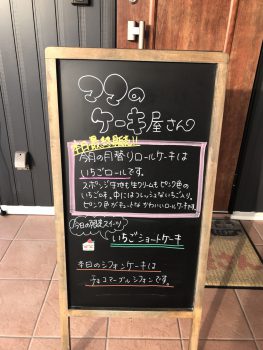 ママの
ケーキ屋さん
本日最終日!!
今月の月替りロールケーキは
いちごロールです。
スポンジ生地も生クリームもピンク色の
いちご味。中にはフレッシュないちご入り。
ピンク色がキュートなかわいいロールケーキです。
今日の限定スイーツ
いちごショートケーキ
本日のシフォンケーキは
チョコマーブルシフォンです。